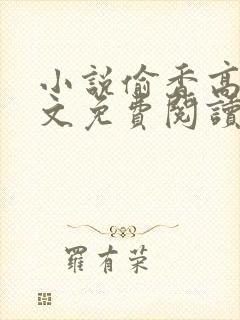 小説偷香高
文免費閱讀
羅有榮